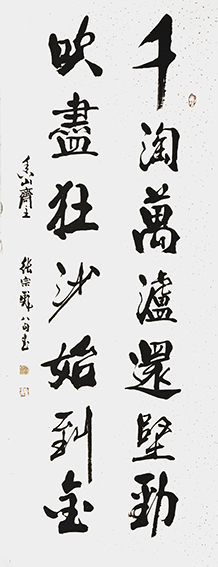 千淘萬瀘還堅勁
吹盡狂沙始到金
山齋主
張宗 书